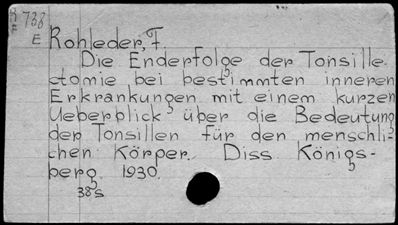 R 738
E
E
Rohleder, F.
Die Enderfolge der Tonsille-
ctomie bei bestimmten inneren
Erkrankungen mit einem kurzen
Ueberblick über die Bedeutung
der Tonsillen für den menschli-
chen Körper. Diss Königs-
berg 1930.
38s